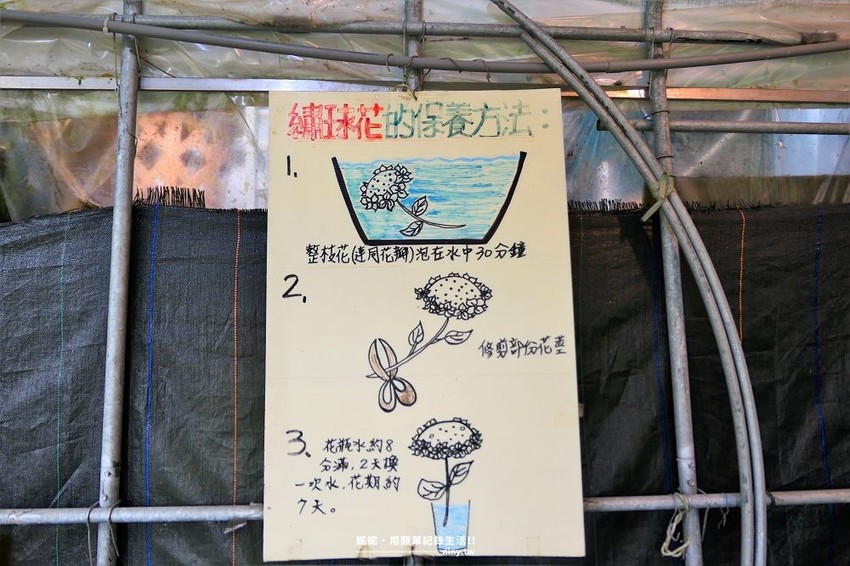 繡球花的保養方法：
1.
整枝花(連同花瓣)泡在水中30分鐘
2.
修剪部份花莖
3.
花瓶水約8
分滿，2天換
一次水，花期約
7天。
蝦蝦•用照單記錄生活!!
niny.tw